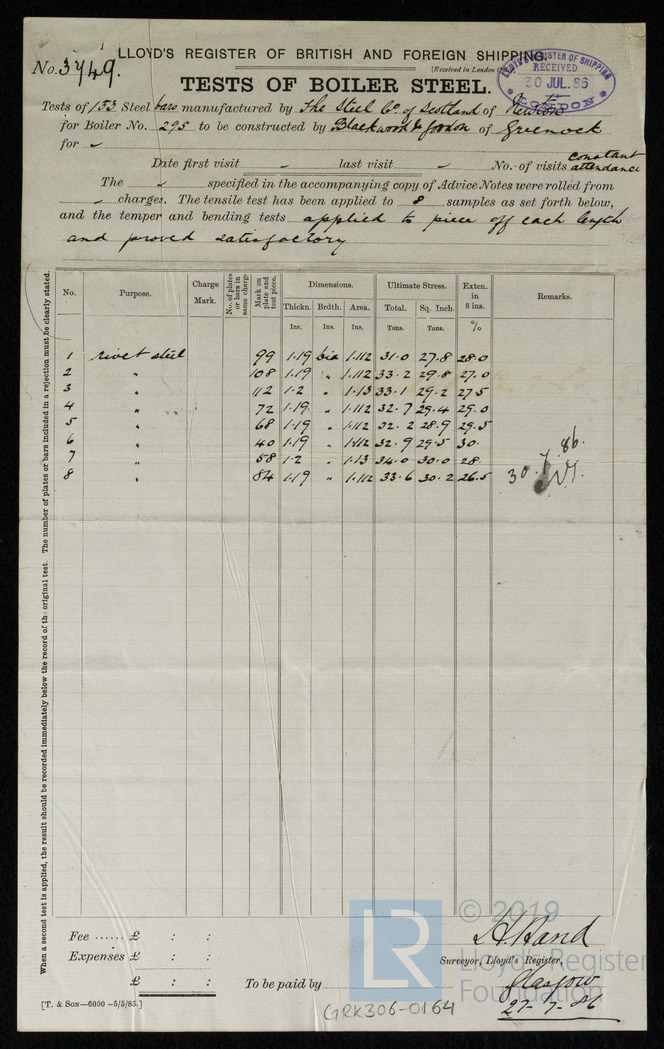 LLOYD'S REGISTER OF BRITISH AND FOREIGN SHIPPING.
No. 3749.
(Received in London
LLOYD'S REGISTER OF SHIPPING
RECEIVED
30 JUL. 86
LONDON
TESTS OF BOILER STEEL.
Tests of 153 Steel bars manufactured by The Steel Co of Scotland of Newton
for Boiler No. 295 to be constructed by Blackwood & Gordon of Greenock
for
Date first visit last visit No. of visits constant attendance
The specified in the accompanying copy of Advice Notes were rolled from
charges. The tensile test has been applied to 8 samples as set forth below,
and the temper and bending tests applied to piece off each length
and proved satisfactory
When a second test is applied, the result should be recorded immediately below the record of the original test. The number of plates or bars included in a rejection must be clearly stated.
No. Purpose. Charge Mark. No. of plates or bars in same charge Mark on plate and test piece. Dimensions. Ultimate Stress. Exten. in 8 ins. Remarks.
Thickn. Brdth. Area. Total. Sq. Inch.
Ins. Ins. Ins. Tons. Tons. %
1 rivet steel 99 1.19 dia 1.112 31.0 27.8 28.0
2 " 108 1.19 " 1.112 33.2 29.8 27.0
3 " 112 1.2 " 1.13 33.1 29.2 27.5
4 " 72 1.19 " 1.112 32.7 29.4 29.0
5 " 68 1.19 " 1.112 32.2 28.9 29.5
6 " 40 1.19 " 1.112 32.9 29.5 30.
7 " 58 1.2 " 1.13 34.0 30.0 28.
8 " 84 1.19 " 1.112 33.6 30.2 26.5
30.7.86.
Fee ...... £ : :
Expenses £ : :
£ : :
To be paid by
H. Hand
Surveyor, Lloyd's Register,
Glasgow
27-7-86
[T. & SON—6000—5/5/85.]
GRK306-0164
LR
© 2019
Lloyd's Register
Foundation